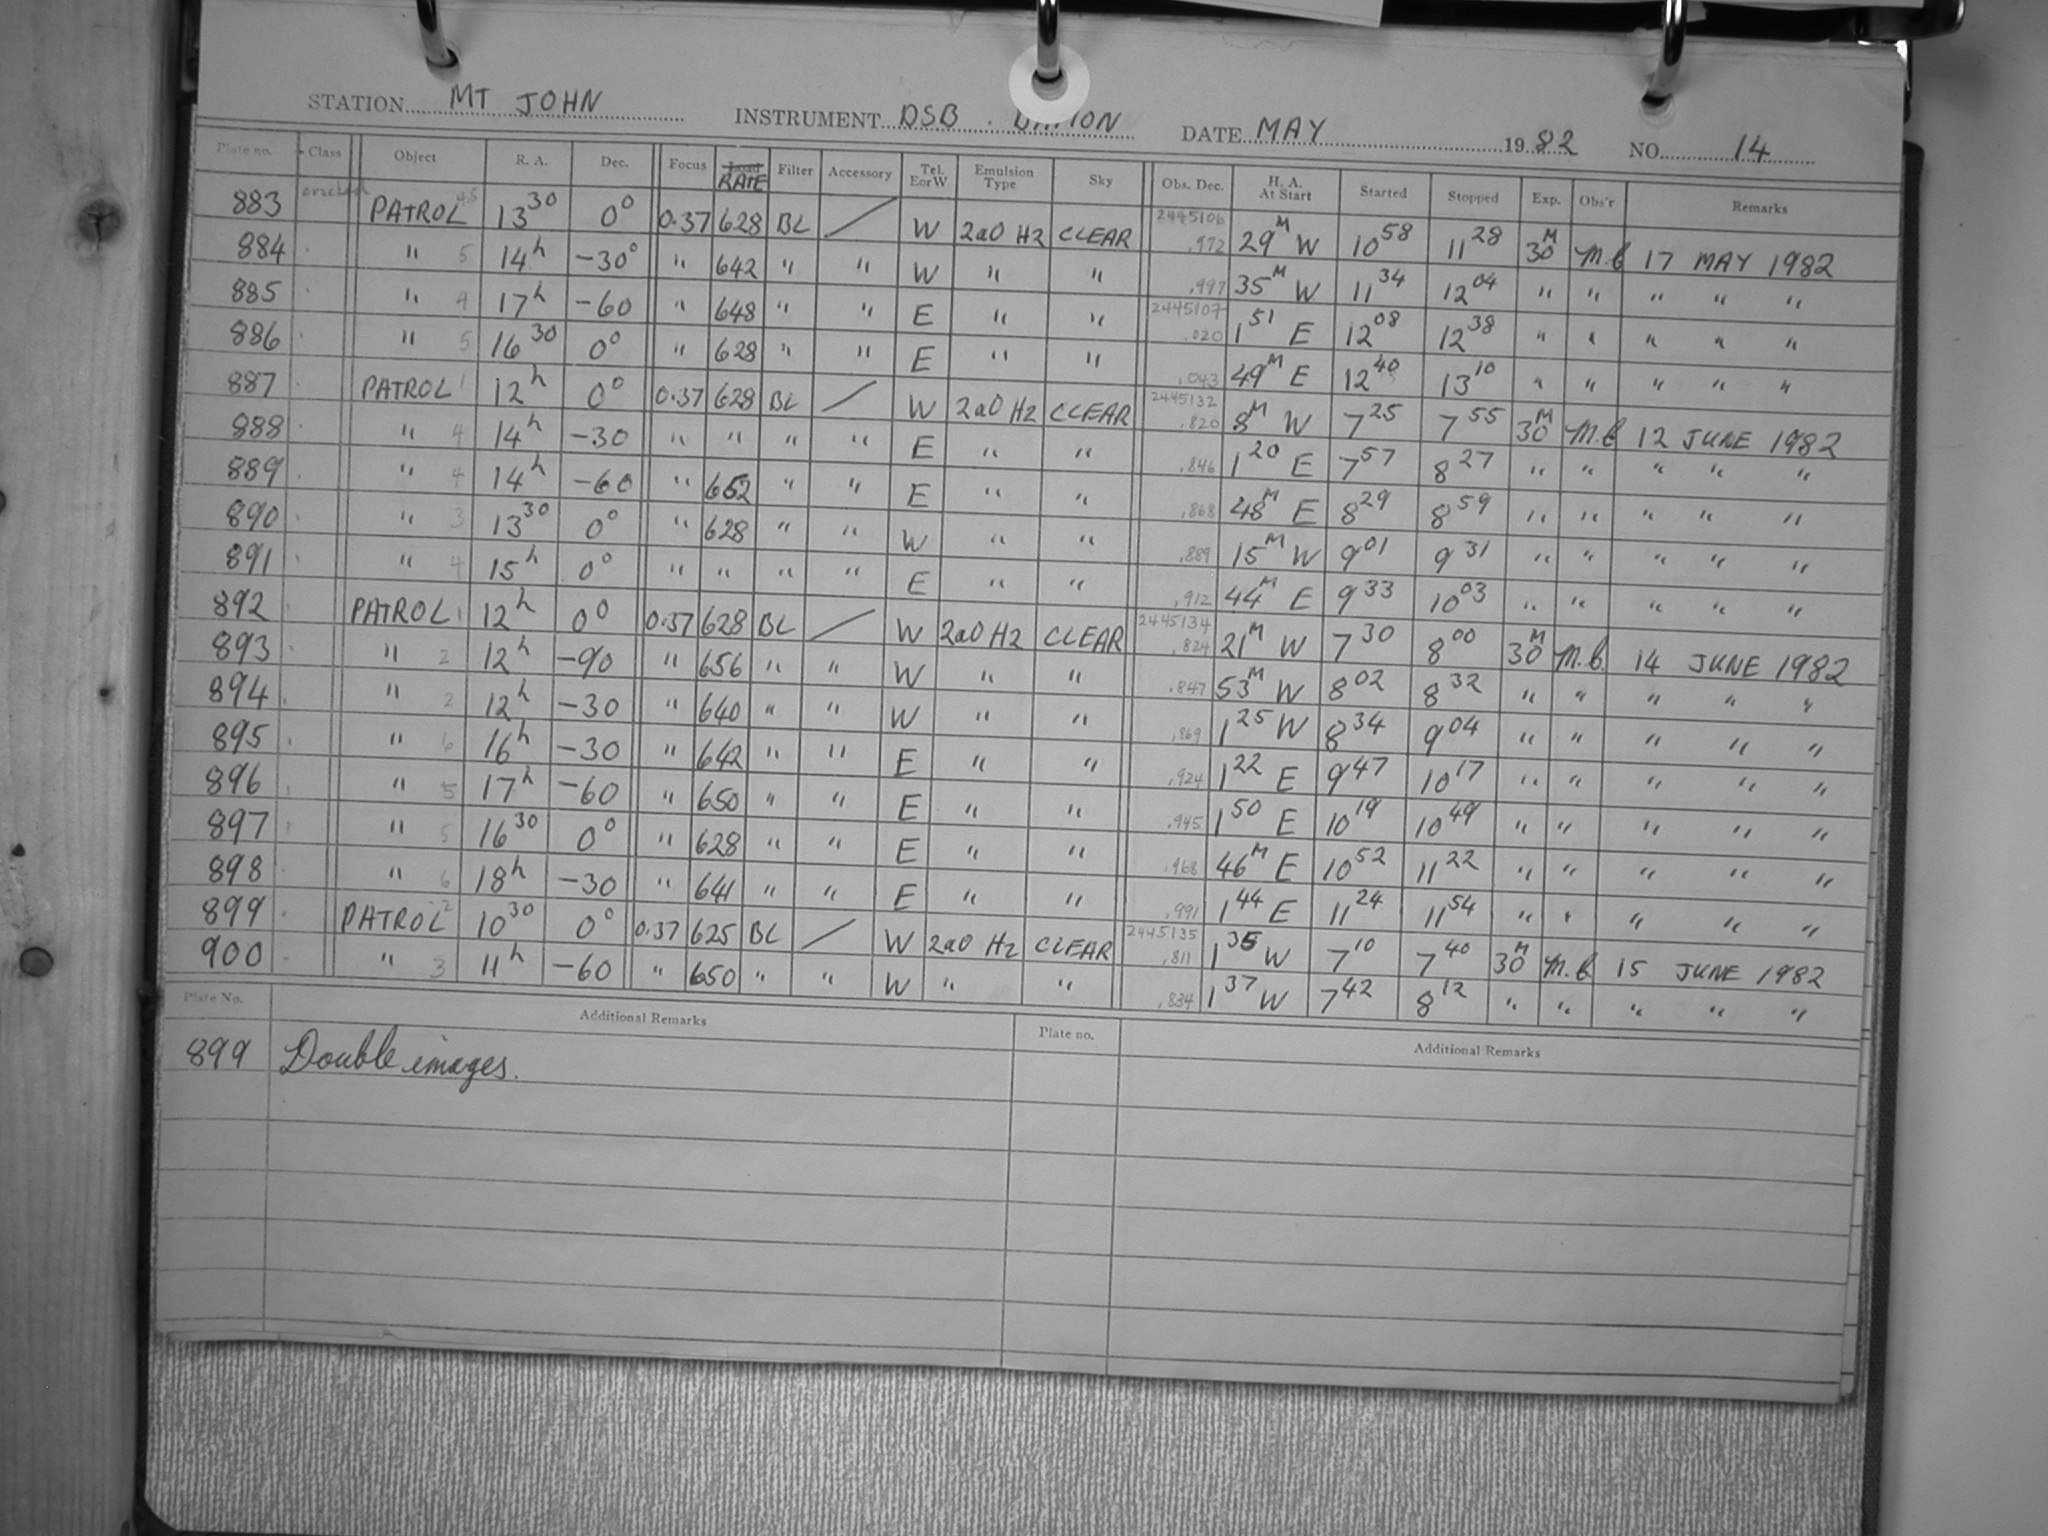 STATION MT JOHN INSTRUMENT DSB DATE MAY 1982 NO. 14
Plate no. Class Object R. A. Dec. Focus RATE Filter Accessory Tel. EorW Emulsion Type Sky Obs. Dec. H. A. At Start Started Stopped Exp. Obs'r Remarks
883 cracked PATROL 4.5 13 30 0° 0.37 628 BL / W 2aO H2 CLEAR 2445106 .972 29M W 10 58 11 28 30M M.C 17 MAY 1982
884 " 5 14h -30° " 642 " " W " " .997 35M W 11 34 12 04 " " " " "
885 " 4 17h -60 " 648 " " E " " 2445107 .020 1 51 E 12 08 12 38 " " " " "
886 " 5 16 30 0° " 628 " " E " " .043 49M E 12 40 13 10 " " " " "
887 PATROL 1 12h 0° 0.37 628 BL / W 2aO H2 CLEAR 2445132 .820 8M W 7 25 7 55 30M M.C 12 JUNE 1982
888 " 4 14h -30 " " " " E " " .846 1 20 E 7 57 8 27 " " " " "
889 " 4 14h -60 " 652 " " E " " .868 48M E 8 29 8 59 " " " " "
890 " 3 13 30 0° " 628 " " W " " .889 15M W 9 01 9 31 " " " " "
891 " 4 15h 0° " " " " E " " .912 44M E 9 33 10 03 " " " " "
892 PATROL 1 12h 0° 0.37 628 BL / W 2aO H2 CLEAR 2445134 .824 21M W 7 30 8 00 30M M.C. 14 JUNE 1982
893 " 2 12h -90 " 656 " " W " " .847 53M W 8 02 8 32 " " " " "
894 " 2 12h -30 " 640 " " W " " .869 1 25 W 8 34 9 04 " " " " "
895 " 6 16h -30 " 642 " " E " " .924 1 22 E 9 47 10 17 " " " " "
896 " 5 17h -60 " 650 " " E " " .945 1 50 E 10 19 10 49 " " " " "
897 " 5 16 30 0° " 628 " " E " " .968 46M E 10 52 11 22 " " " " "
898 " 6 18h -30 " 641 " " E " " .991 1 44 E 11 24 11 54 " " " " "
899 PATROL 2 10 30 0° 0.37 625 BL / W 2aO H2 CLEAR 2445135 .811 1 35 W 7 10 7 40 30M M.C 15 JUNE 1982
900 " 3 11h -60 " 650 " " W " " .834 1 37 W 7 42 8 12 " " " " "
Plate No. Additional Remarks Plate no. Additional Remarks
899 Double images.